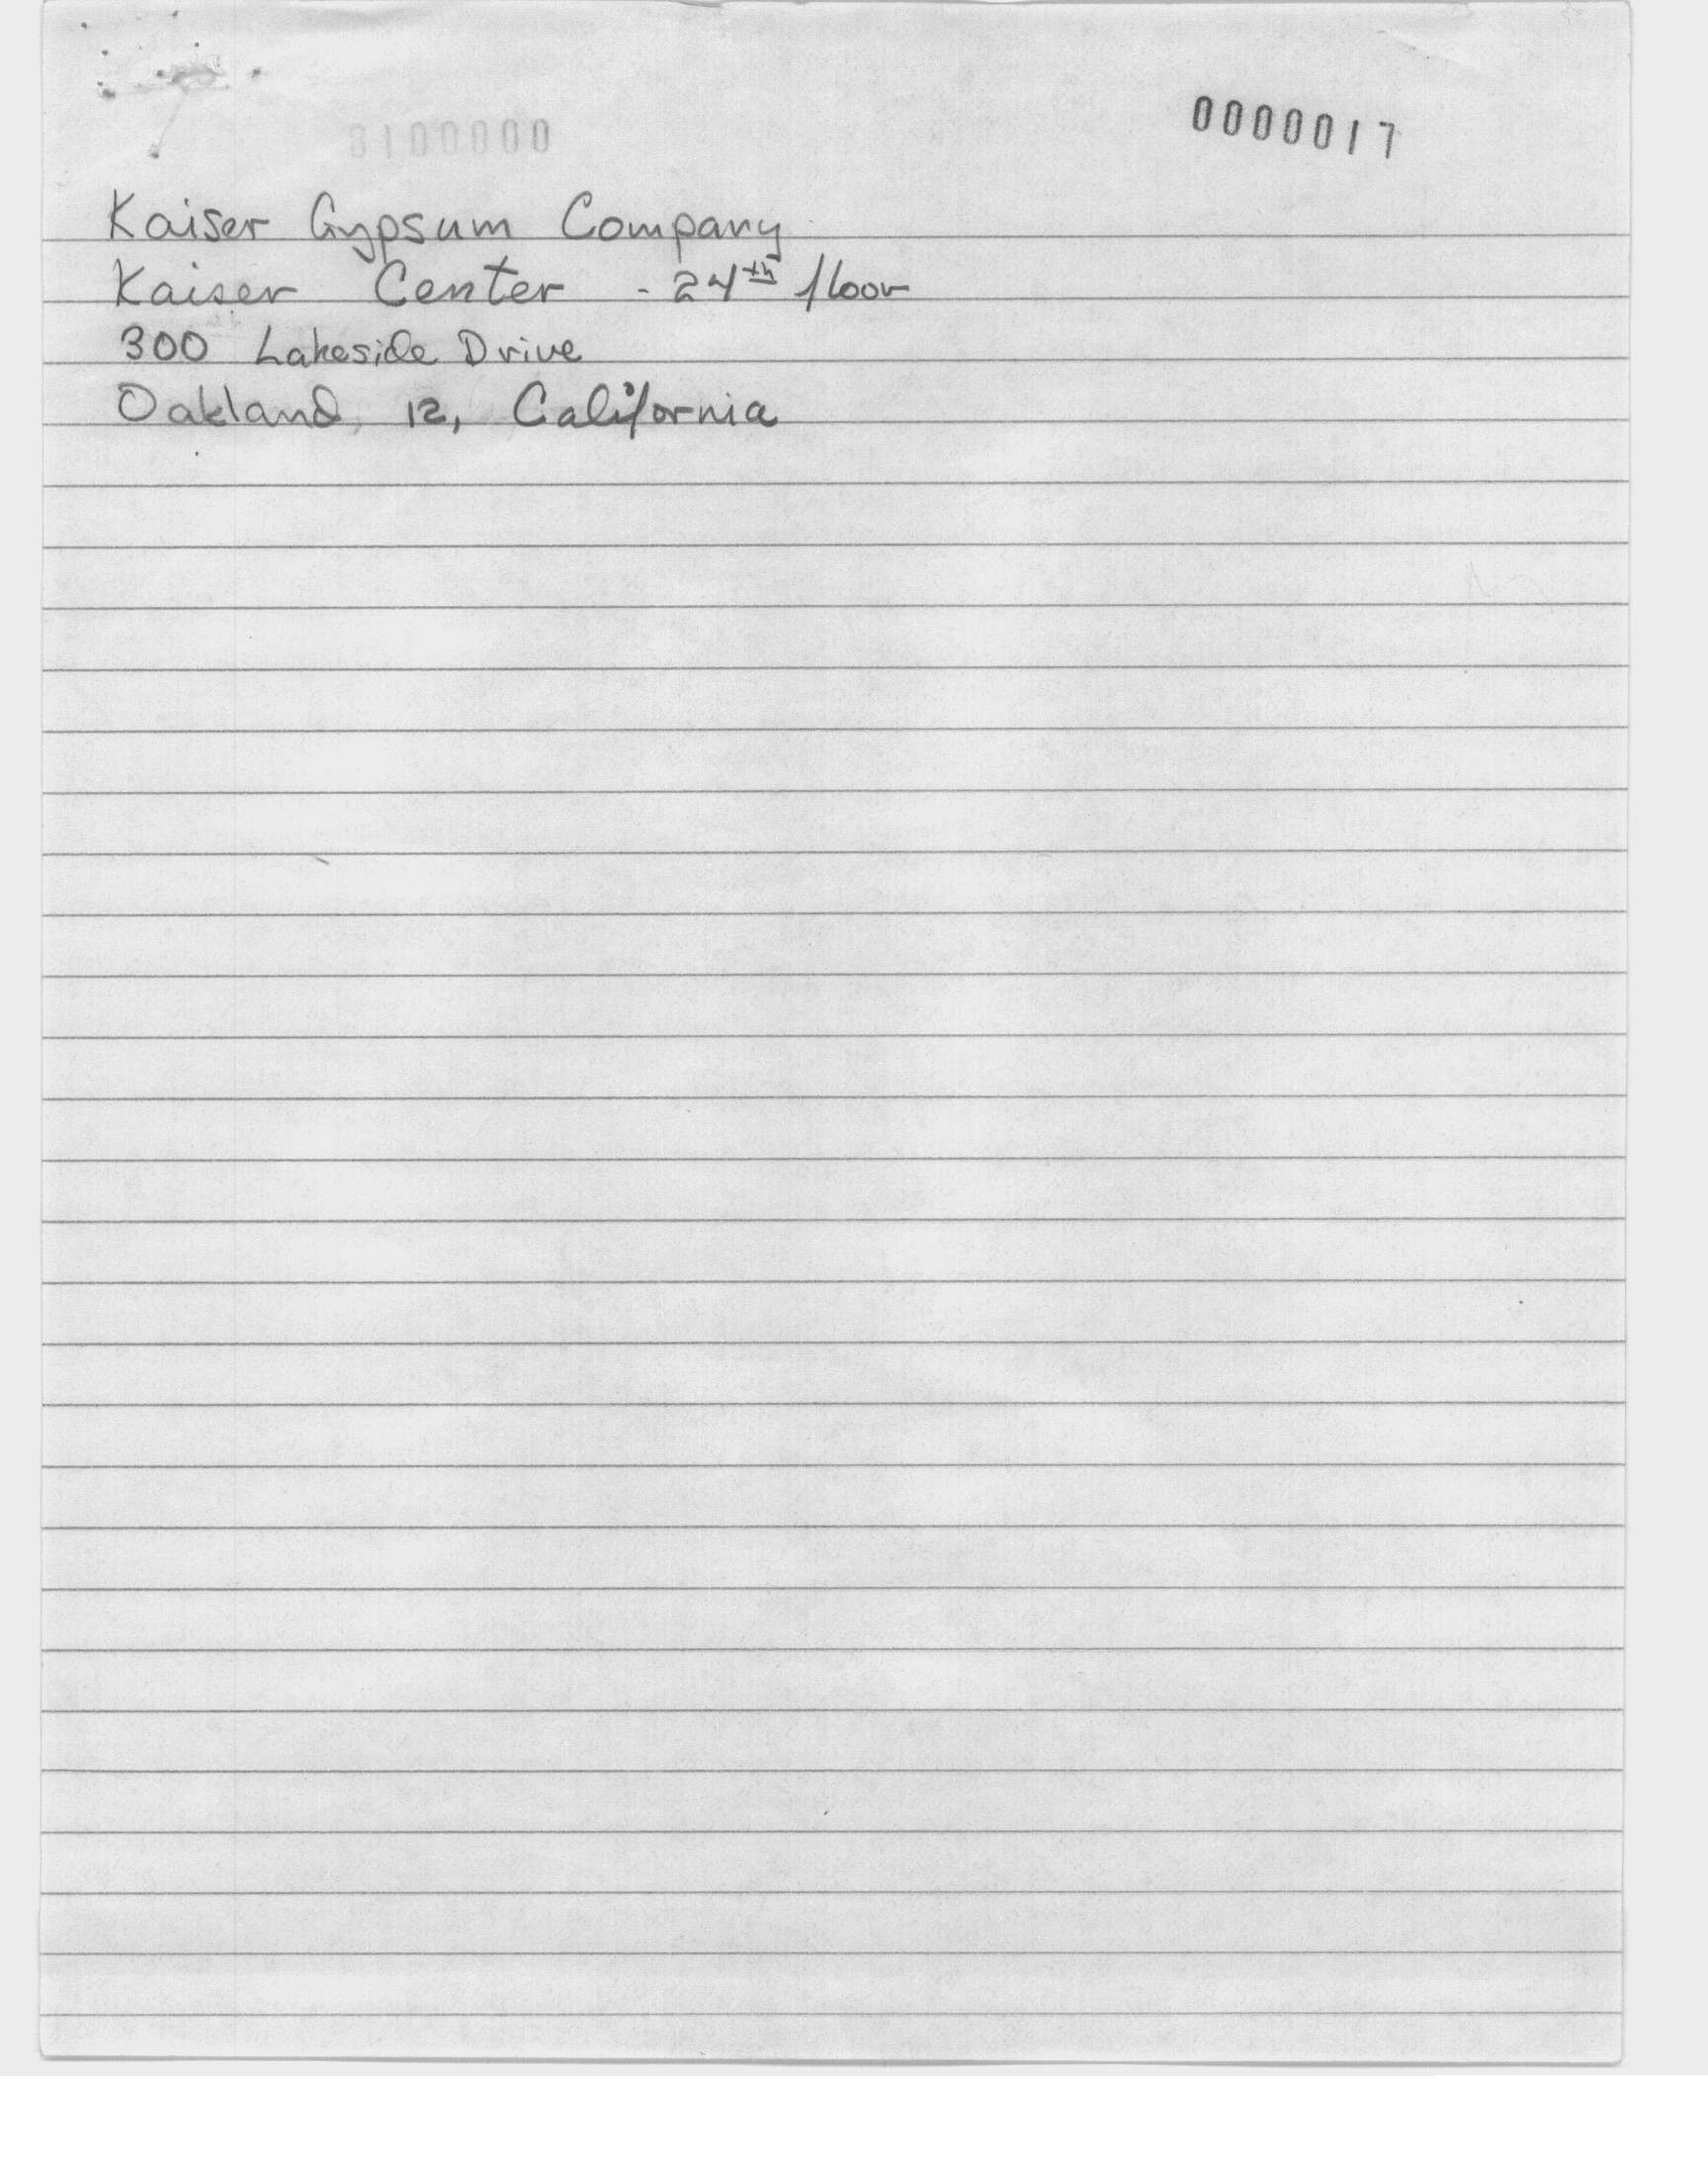 0000017
Kaiser Gypsum Company
Kaiser Center - 24th floor
300 Lakeside Drive
Oakland, 12, California